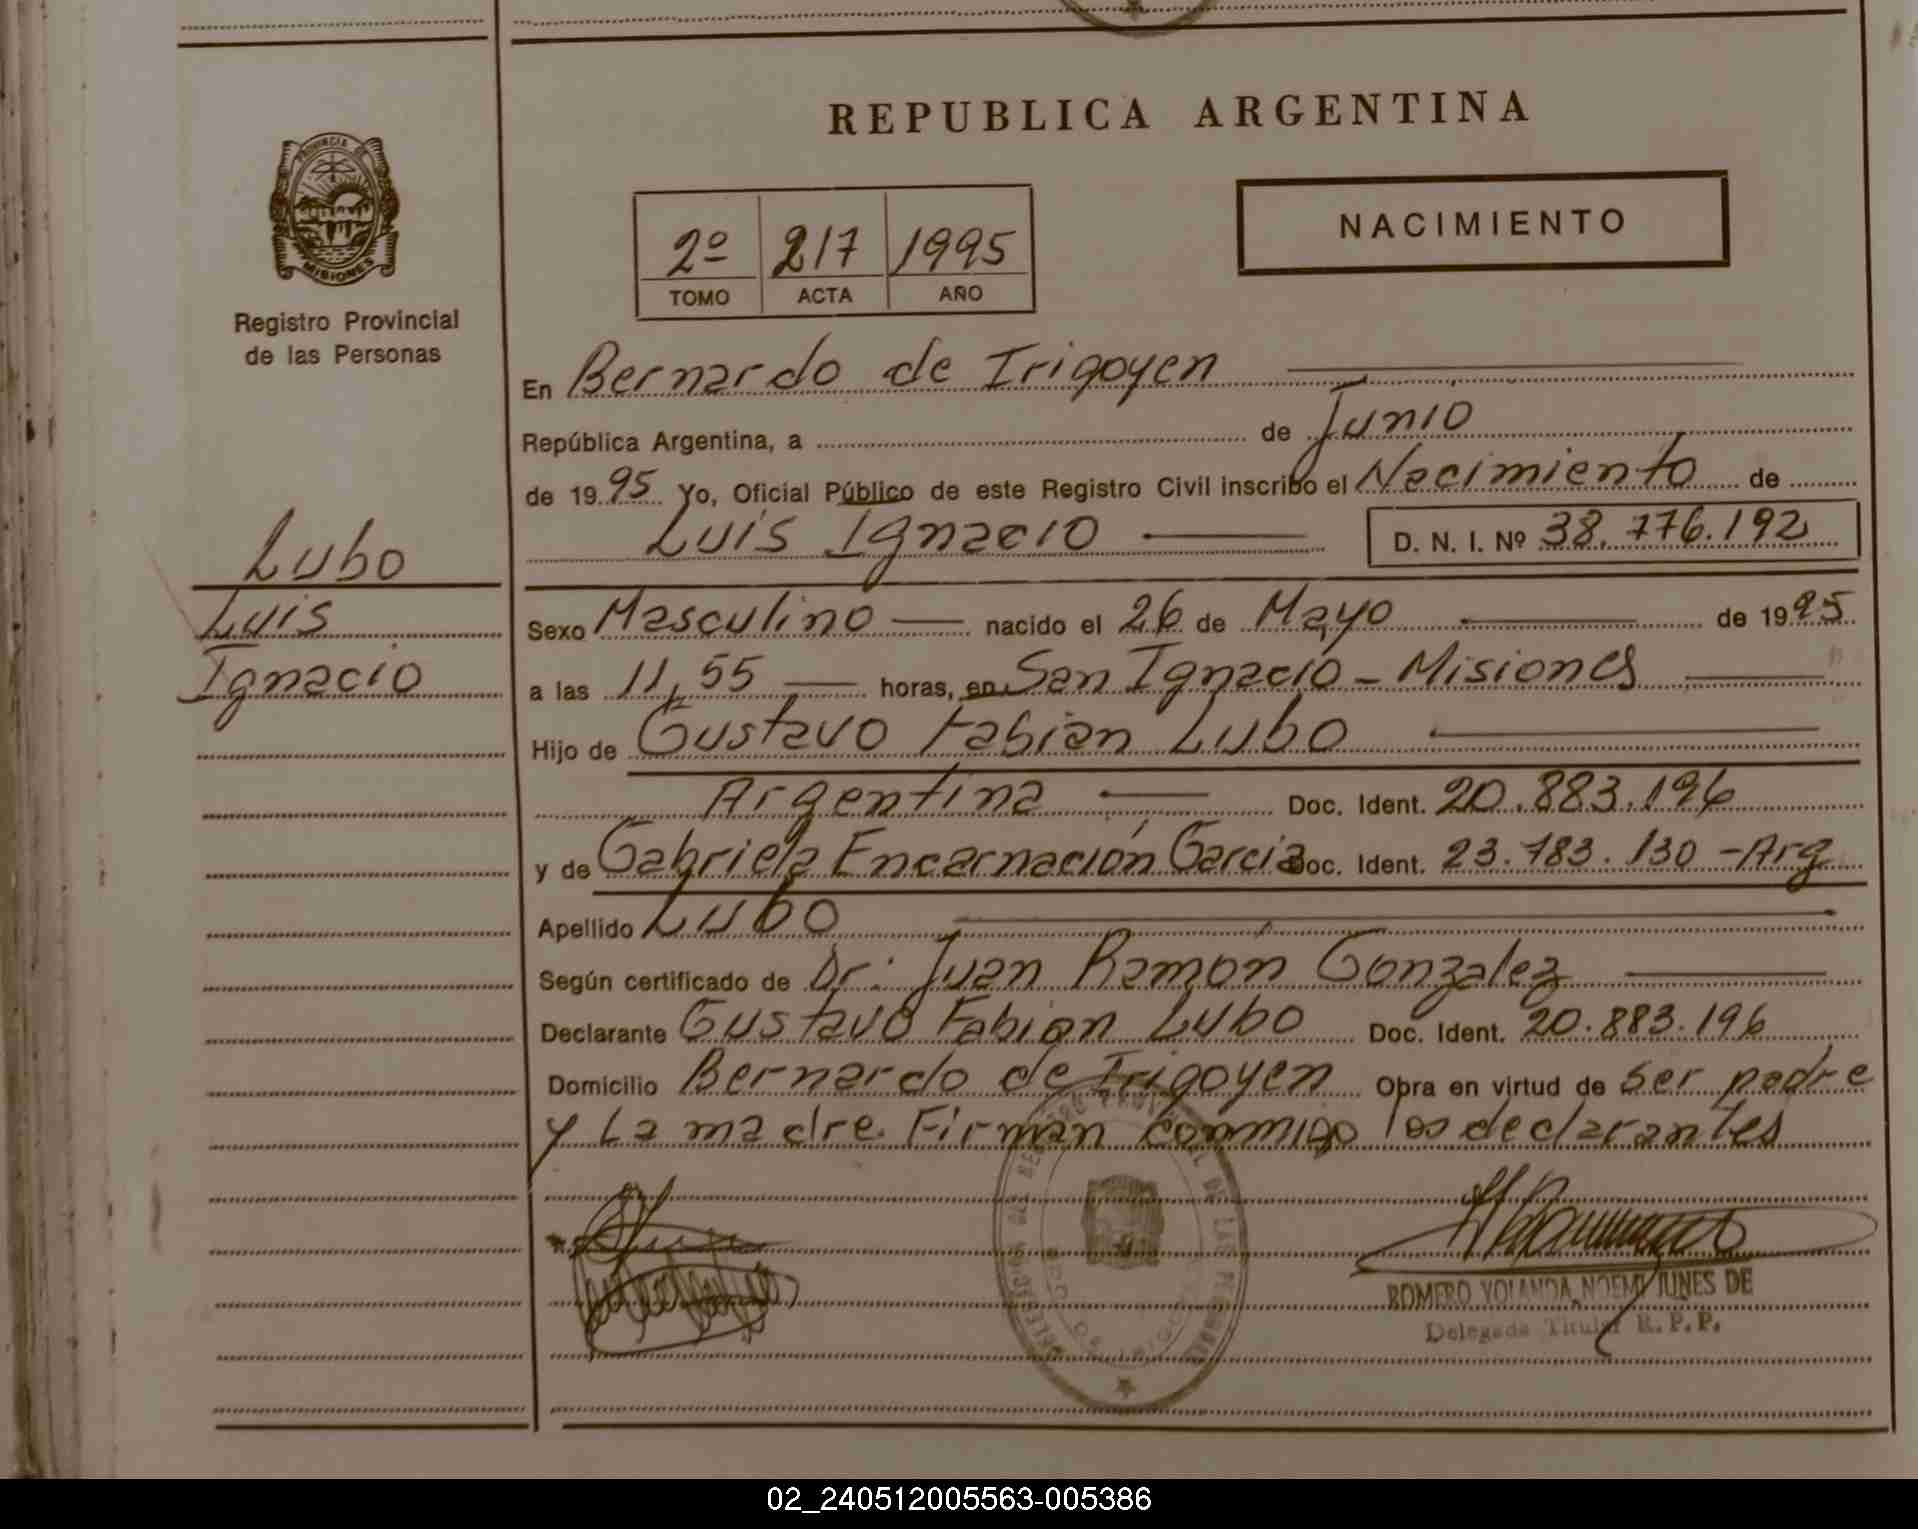 REPUBLICA ARGENTINA
PROVINCIA DE
MISIONES
Registro Provincial
de las Personas
2º 217 1995
TOMO ACTA AÑO
NACIMIENTO
En Bernardo de Irigoyen
República Argentina, a de Junio
de 1995 Yo, Oficial Público de este Registro Civil inscribo el Nacimiento de
Luis Ignacio D. N. I. Nº 38.776.192
Lubo
Luis
Ignacio
Sexo Masculino nacido el 26 de Mayo de 1995
a las 11,55 horas, en San Ignacio - Misiones
Hijo de Gustavo Fabian Lubo
Argentina Doc. Ident. 20.883.196
y de Gabriela Encarnación Garcia Doc. Ident. 23.783.130 - Arg
Apellido Lubo
Según certificado de Dr: Juan Ramón Gonzalez
Declarante Gustavo Fabian Lubo Doc. Ident. 20.883.196
Domicilio Bernardo de Irigoyen Obra en virtud de Ser padre
y La madre. Firman conmigo los declarantes
ROMERO YOLANDA NOEMI JUNES DE
Delegada Titular R.P.P.
02_240512005563-005386